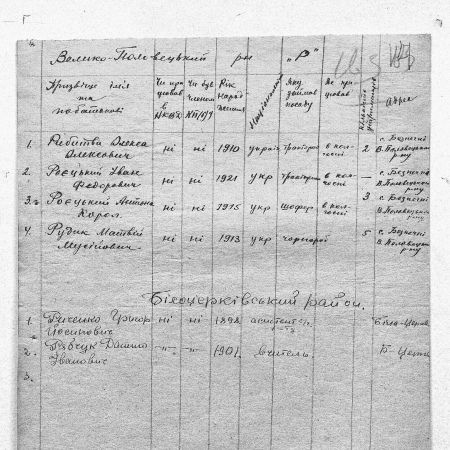 Велико-Половецький р-н „Р"
Прізвище ім'я та по батькові Чи працював в НКВД Чи був членом КП(б)У Рік народження Національність Яку займав посаду Де працював адреса
1. Олекса Олексович ні ні 1910 україн тракторист в колгоспі 2 с. Безпечні В. Половецького р-ну
2. Роєцький Іван Федорович ні ні 1921 укр тракторист в колгоспі — с. Безпечні В. Половецького р-ну
3. Роєцький Антон Карол. ні ні 1915 укр шофер в колгоспі 3 с. Безпечні В. Половецького р-ну
4. Рудик Матвій Мусійович ні ні 1913 укр чорнороб 5 с. Безпечні В. Половецького р-ну
Білоцерківський район.
1. Григор Йосипович ні ні 1898 Біла-Церква
2. Данило Іванович -"- -"- 1901. вчитель. Б-Церква
3.